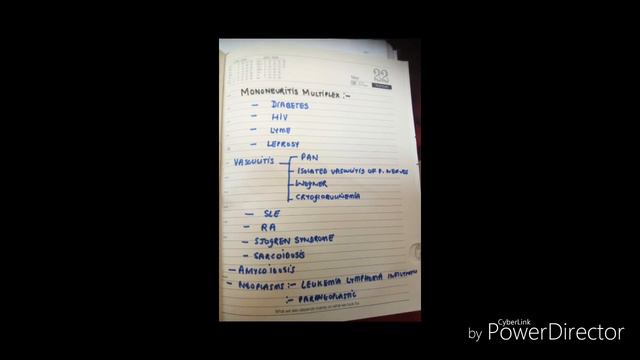 22
MONONEURITIS MULTIPLEX :-
- DIABETES
- HIV
- LYME
- LEPROSY
VASCULITIS - PAN
- ISOLATED VASCULITIS OF P. NERVES
- WEGNER
- CRYOGLOBULINEMIA
- SLE
- RA
- SJOGREN SYNDROME
- SARCOIDOSIS
- AMYLOIDOSIS
- NEOPLASMS :- LEUKEMIA LYMPHOMA
:- PARANEOPLASTIC
CyberLink
by PowerDirector